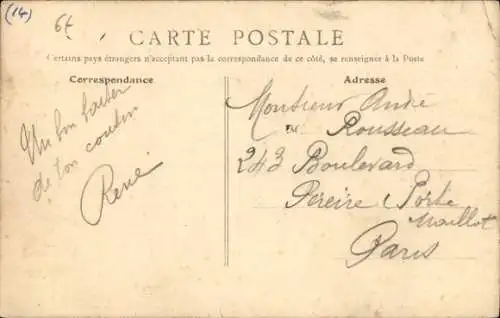 (14)
6t
CARTE POSTALE
Certains pays étrangers n'acceptant pas la correspondance de ce côté, se renseigner à la Poste
Correspondance
Adresse
Un bon baiser
de ton cousin
René
Monsieur André
Rousseau
243 Boulevard
Pereire (Porte
Maillot
Paris